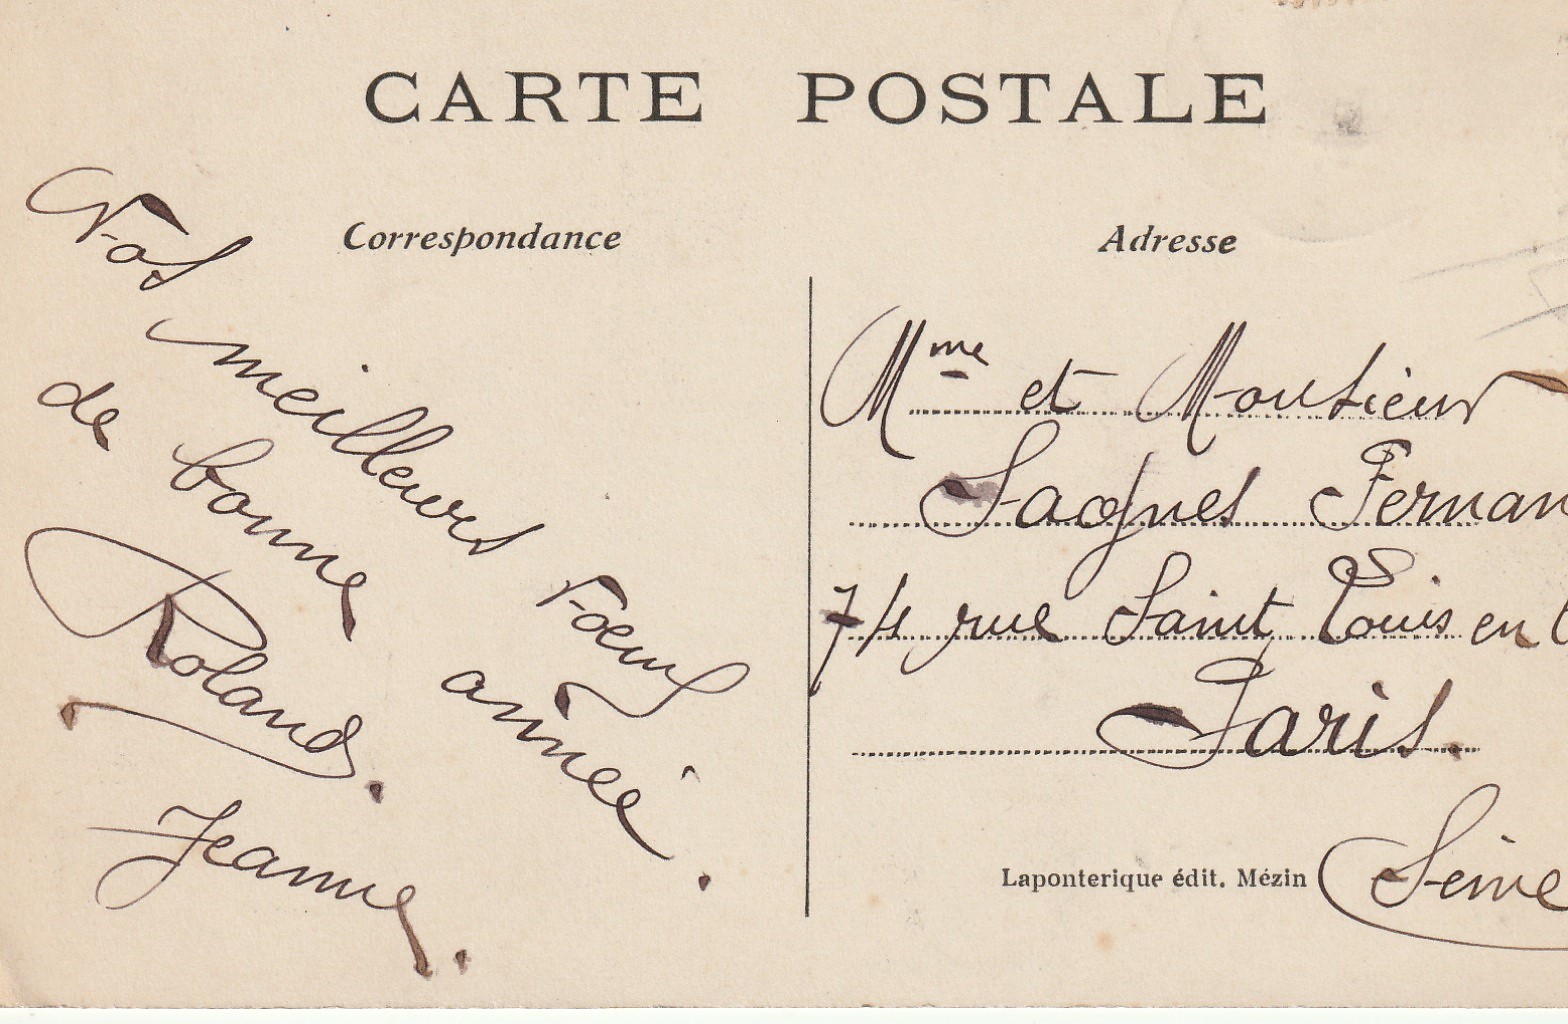 CARTE POSTALE
Correspondance
Nos meilleurs voeux
de bonne année.
Roland.
Jeanne.
Adresse
Mme et Monsieur
Jacques Fernan
74 rue Saint Louis en l
Paris.
Seine
Laponterique édit. Mézin